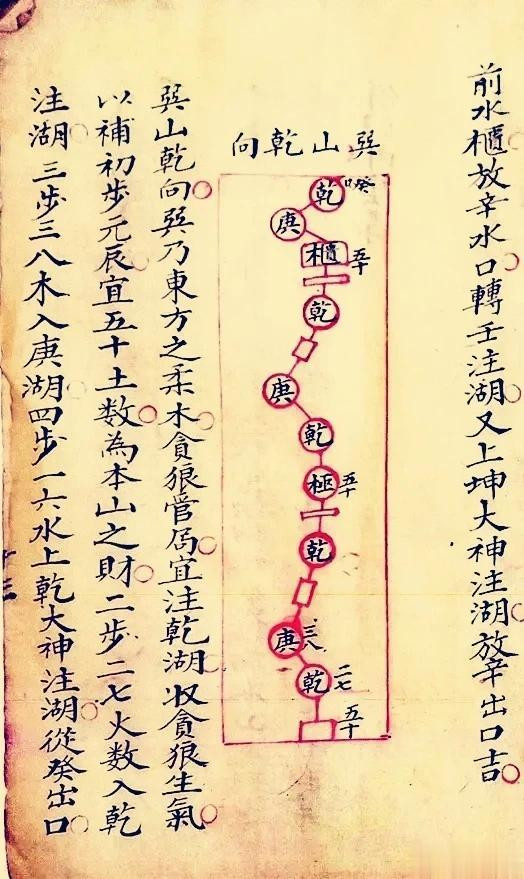 前水櫃放辛水口轉壬注湖又上坤大神注湖放辛出口吉
向乾山巽
乾
癸口
庚
櫃
五十
乾
庚
乾
極
五十
乾
庚
三八
乾
二七
五十
巽山乾向巽乃東方之柔木貪狼管局宜注乾湖收貪狼生氣
以補初步元辰宜五十土数為本山之財二步二七火数入乾
注湖三步三八木入庚湖四步一六水上乾大神注湖從癸出口